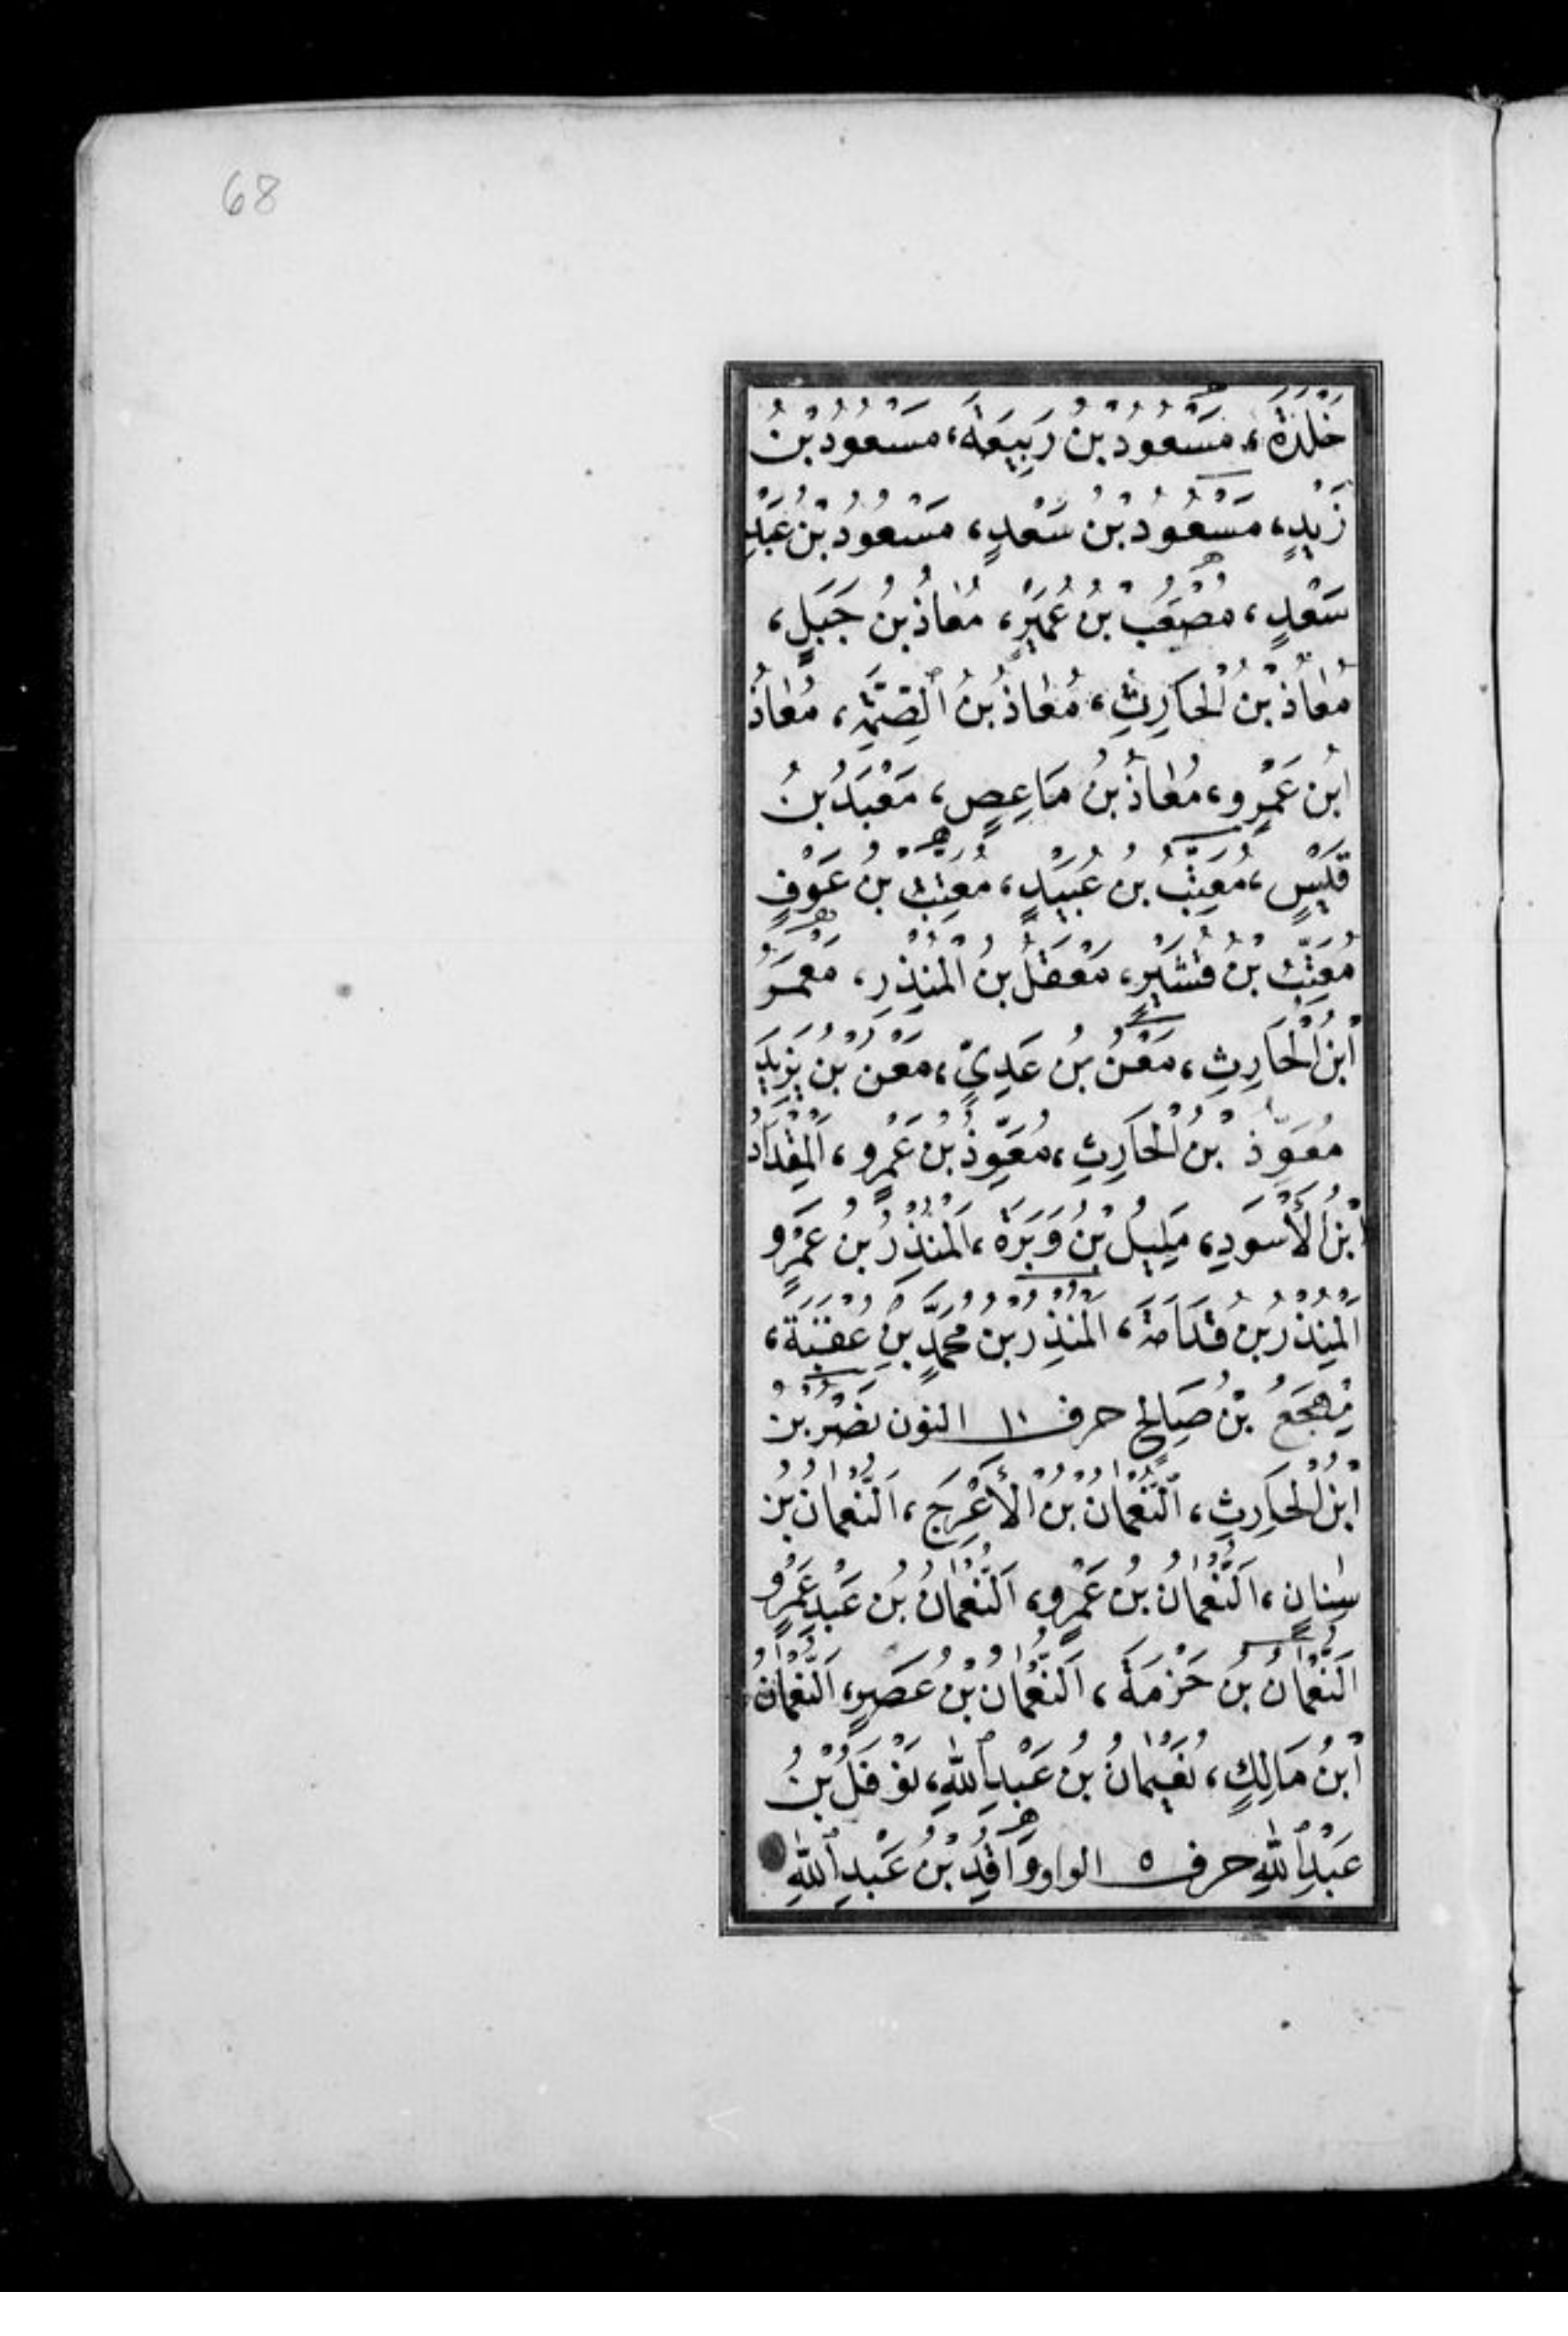 68
خَلْدَةَ، مَسْعُودُ بْنُ رَبِيعَةَ، مَسْعُودُ بْنُ
زَيْدٍ، مَسْعُودُ بْنُ سَعْدٍ، مَسْعُودُ بْنُ عَبْدِ
سَعْدٍ، مُصْعَبُ بْنُ عُمَيْرٍ، مُعَاذُ بْنُ جَبَلٍ،
مُعَاذُ بْنُ الْحَارِثِ، مُعَاذُ بْنُ الصِّمَّةِ، مُعَاذُ
ابْنُ عَمْرٍو، مُعَاذُ بْنُ مَاعِصٍ، مَعْبَدُ بْنُ
قَيْسٍ، مُعَتِّبُ بْنُ عُبَيْدٍ، مُعَتِّبُ بْنُ عَوْفٍ
مُعَتِّبُ بْنُ قُشَيْرٍ، مَعْقِلُ بْنُ الْمُنْذِرِ، مَعْمَرُ
ابْنُ الْحَارِثِ، مَعْنُ بْنُ عَدِيٍّ، مَعْنُ بْنُ يَزِيدَ
مُعَوِّذُ بْنُ الْحَارِثِ، مُعَوِّذُ بْنُ عَمْرٍو، الْمِقْدَادُ
ابْنُ الْأَسْوَدِ، مَلِيلُ بْنُ وَبَرَةَ، الْمُنْذِرُ بْنُ عَمْرٍو
الْمُنْذِرُ بْنُ قُدَامَةَ، الْمُنْذِرُ بْنُ مُحَمَّدِ بْنِ عُقْبَةَ،
مِهْجَعُ بْنُ صَالِحٍ حرف ١٠ النون نَصْرُ بْنُ
ابْنُ الْحَارِثِ، النُّعْمَانُ بْنُ الْأَعْرَجِ، النُّعْمَانُ بْنُ
سِنَانٍ، النُّعْمَانُ بْنُ عَمْرٍو، النُّعْمَانُ بْنُ عَبْدِ عَمْرٍو
النُّعْمَانُ بْنُ خَزْمَةَ، النُّعْمَانُ بْنُ عَصَرٍ، النُّعْمَانُ
ابْنُ مَالِكٍ، نُعَيْمَانُ بْنُ عَبْدِ اللهِ، نَوْفَلُ بْنُ
عَبْدِ اللهِ حرف ٥ الواو وَاقِدُ بْنُ عَبْدِ اللهِ